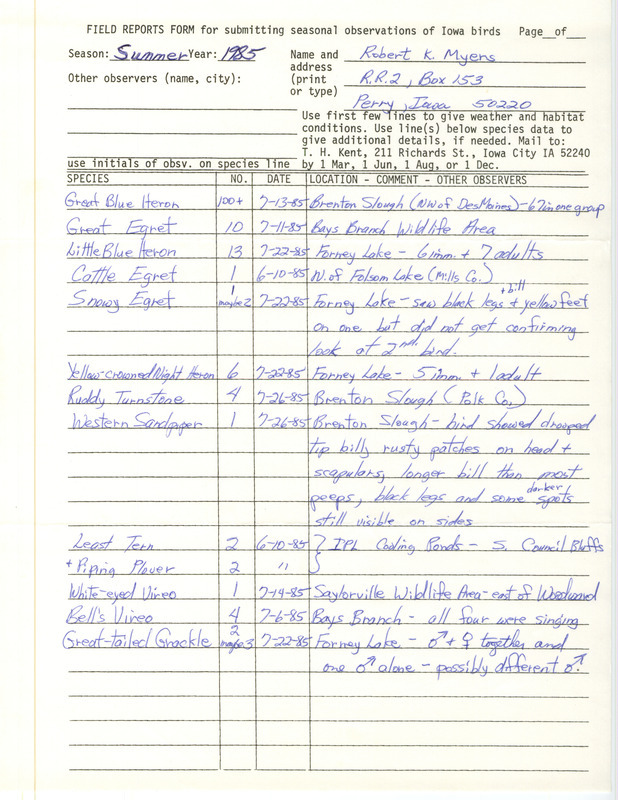 FIELD REPORTS FORM for submitting seasonal observations of Iowa birds Page__of__
Season: Summer Year: 1985
Name and address (print or type) Robert K. Myers
R.R.2, Box 153
Perry, Iowa 50220
Other observers (name, city):
Use first few lines to give weather and habitat
conditions. Use line(s) below species data to
give additional details, if needed. Mail to:
T. H. Kent, 211 Richards St., Iowa City IA 52240
by 1 Mar, 1 Jun, 1 Aug, or 1 Dec.
use initials of obsv. on species line
SPECIES NO. DATE LOCATION - COMMENT - OTHER OBSERVERS
Great Blue Heron 100+ 7-13-85 Brenton Slough (NW of Des Moines) - 67 in one group
Great Egret 10 7-11-85 Bays Branch Wildlife Area
Little Blue Heron 13 7-22-85 Forney Lake - 6 imm. + 7 adults
Cattle Egret 1 6-10-85 N. of Folsom Lake (Mills Co.)
Snowy Egret 1 maybe 2 7-22-85 Forney Lake - saw black legs + bill + yellow feet
on one but did not get confirming
look at 2nd bird.
Yellow-crowned Night Heron 6 7-22-85 Forney Lake - 5 imm. + 1 adult
Ruddy Turnstone 4 7-26-85 Brenton Slough (Polk Co.)
Western Sandpiper 1 7-26-85 Brenton Slough - bird showed drooped
tip bill, rusty patches on head +
scapulars, longer bill than most
peeps, black legs and some darker spots
still visible on sides
Least Tern 2 6-10-85 } IPL Cooling Ponds - S. Council Bluffs
+ Piping Plover 2 " }
White-eyed Vireo 1 7-14-85 Saylorville Wildlife Area - east of Woodward
Bell's Vireo 4 7-6-85 Bays Branch - all four were singing
Great-tailed Grackle 2 maybe 3 7-22-85 Forney Lake - ♂ + ♀ together and
one ♂ alone - possibly different ♂.